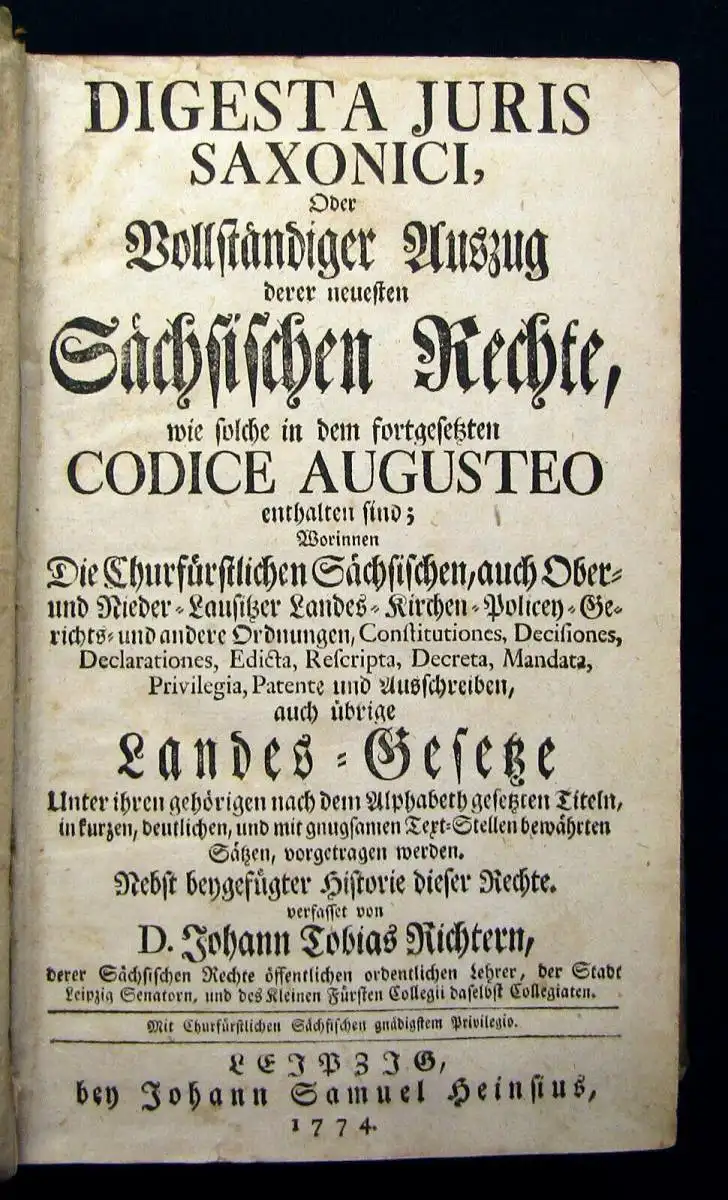 DIGESTA JURIS
SAXONICI,
Oder
Vollständiger Auszug
derer neuesten
Sächsischen Rechte,
wie solche in dem fortgesetzten
CODICE AUGUSTEO
enthalten sind;
Worinnen
Die Churfürstlichen Sächsischen, auch Ober-
und Nieder-Lausitzer Landes-Kirchen-Policey-Ge-
richts- und andere Ordnungen, Constitutiones, Decisiones,
Declarationes, Edicta, Rescripta, Decreta, Mandata,
Privilegia, Patente und Ausschreiben,
auch übrige
Landes-Gesetze
Unter ihren gehörigen nach dem Alphabeth gesetzten Titeln,
in kurzen, deutlichen, und mit gnugsamen Text-Stellen bewährten
Sätzen, vorgetragen werden.
Nebst beygefügter Historie dieser Rechte.
verfasset von
D. Johann Tobias Richtern,
derer Sächsischen Rechte öffentlichen ordentlichen Lehrer, der Stadt
Leipzig Senatorn, und des Kleinen Fürsten Collegii daselbst Collegiaten.
Mit Churfürstlichen Sächsischen gnädigstem Privilegio.
LEIPZIG,
bey Johann Samuel Heinsius,
1774.